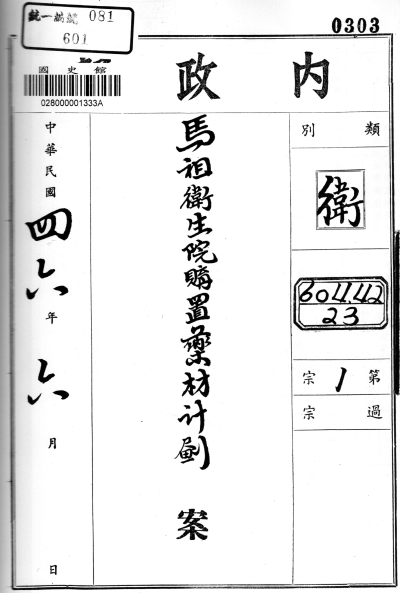 統一編號 081
601
0303
國史館
028000001333A
内政
類別
衛
604.42
23
第1宗
過宗
馬祖衛生院購置藥材計劃 案
中華民國四六年六月 日